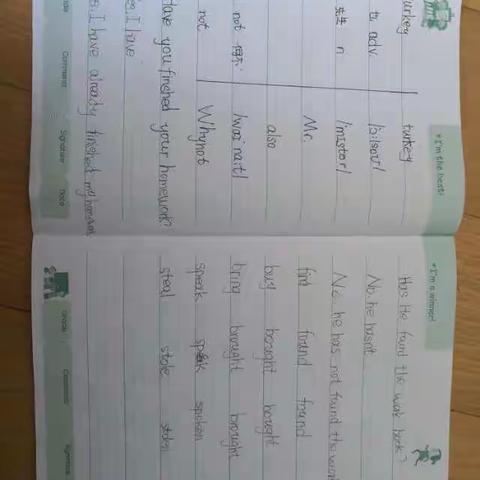 I'm the best!
turkey turkey
也 adv. /ˈɔ:lsəʊ/
先生 n /mistər/
Mr.
also
not
not Why not
Have you finished your homework?
I have
I have already finished my
Comments Signature Date
I'm a winner!
Has He found the book?
No, he hasn't
No, he has not found the
find found found
buy bought bought
bring brought brought
speak spoken
steal stole stolen
Grade Comments Signature